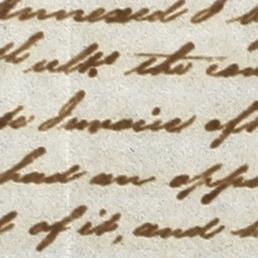 annexed I
th ulto. the
Invoice of
had an opp
of it, and